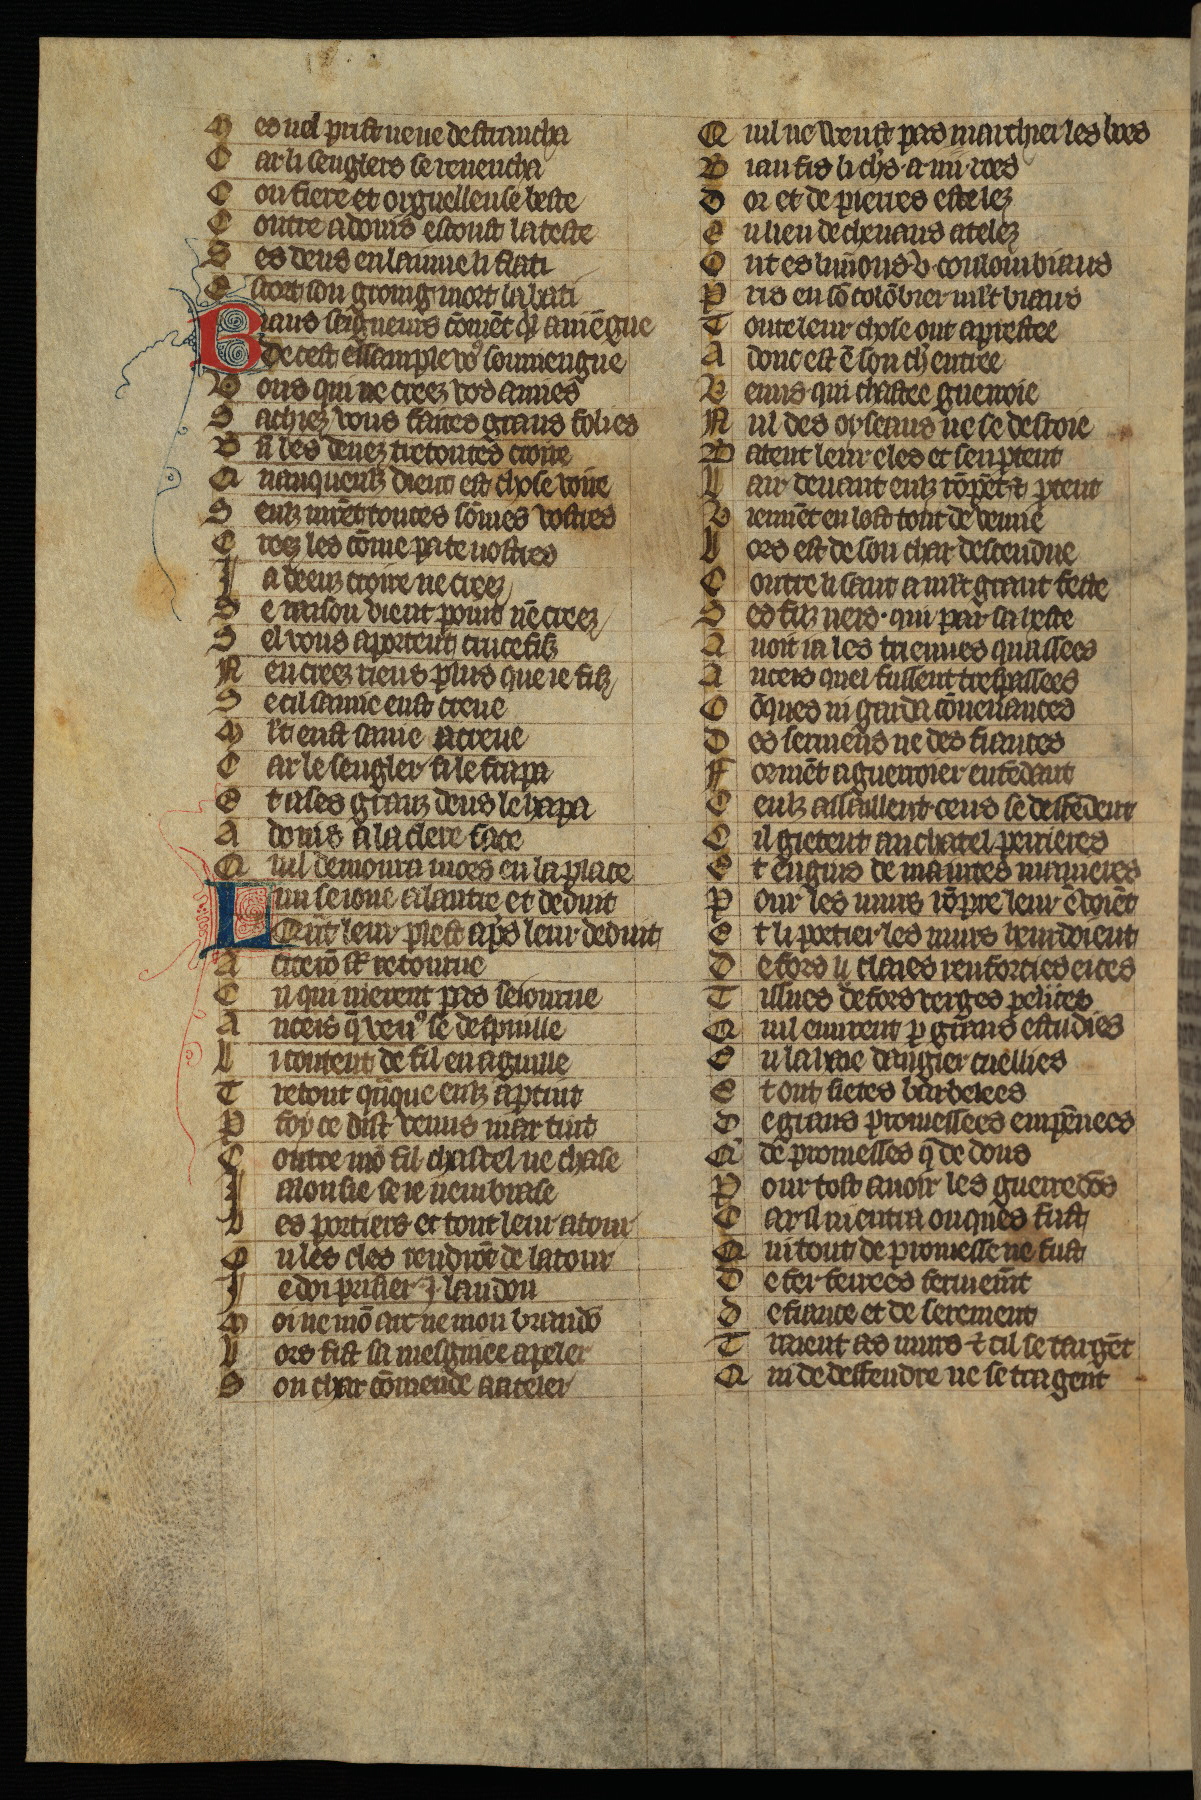 M es nel prist ne ne destrancha
C ar li senglers se revencha
C on fiere et orguelleuse beste
C outre adonis escoust la teste
S es dens en lainne li flati
E stort son groing mort labati
B iaus seigneurs cōmēt qͥl aviēgne
De cest essample voꝰ souviengne
V ous qui ne creez vos amies
S achiez vous faites grans folies
B ñ les deuez trestoutes croire
Q uanqueulz dient est chose voire
S eulz iurēt toutes sōmes vostres
C reez les cōme pate nostres
J a deeuz croire ne creez
S e raison vient point nē creez
S el vous aportent crucefiz
N en creez riens plus que ie fiz
S e cil samie eust creue
M lt eust sa vie acreue
C ar le sengler si le frapa
E t a ses granz dens le hapa
A donis a la clere face
Q uil demoura mors en la place
L un se ioue a lautre et deduit
Qūt leur plest ap̄s leur deduit
A citerō st̄ retourne
C il qui nierent pas seiourne
A nceis q̄ venꝰ se despuille
L i content de fil en aguille
T retout qūque eulz aptint
P foy ce dist venus mar tint
C outre mō fil chastel ne chase
J alousie se ie nembrase
L es portiers et tout leur atour
O u les cles rendrōt de la tour
J e doi prisier .j. laudon
M oi ne mō arc ne mon brandō
L ors fist sa mesgniee apeler
S on char cōmende a ateler
Q uil ne veust pas marchier les boes
B iau fis li chs .a .iiii. roes
D or et de pierres estelez
E n lieu de chevaus atelez
O nt es limōns .v. coulombiaus
P ris en sō colōbier mlt biaus
T oute leur chose ont aprestee
A donc est ē son ch̄ entree
V enus qui chastee guerroie
N ul des oyseaus ne se destroie
B atent leur eles et sen ptent
L air devant eulz rōpēt ⁊ ptent
V iennēt en lost tout de venue
L ors est de son char descendue
C outre li saut a mlt grant feste
S es filz vers qui par sa heste
A uoit ia les triennes quassees
A nceis quel fussent trespassees
O ōques ni garda cōuenances
D es sermens ne des fiances
F ormēt a guerroier entēdant
C eulz assaillent ceus se deffēdent
C il gietent au chatel perrieres
E t engins de maintes manieres
P our les murs rōpre leur ēvoiēt
E t li portier les murs hourdoient
D e fors claies renforcies eites
T issues de fors verges pelices
Q uil eurent p grāns estudies
E n la haie dangier cuellies
E t ont fietes bardelees
D e grans promesses empēnees
Q̄ de promesses q̄ de dons
P our tost auoir les guerredōs
C ar il nientra onques fust
Q ui tout de promesse ne fust
D e fer ferrees fermemt
D e fiance et de serement
T raient as murs ⁊ cil se targēt
Q ui de deffendre ne se tragent